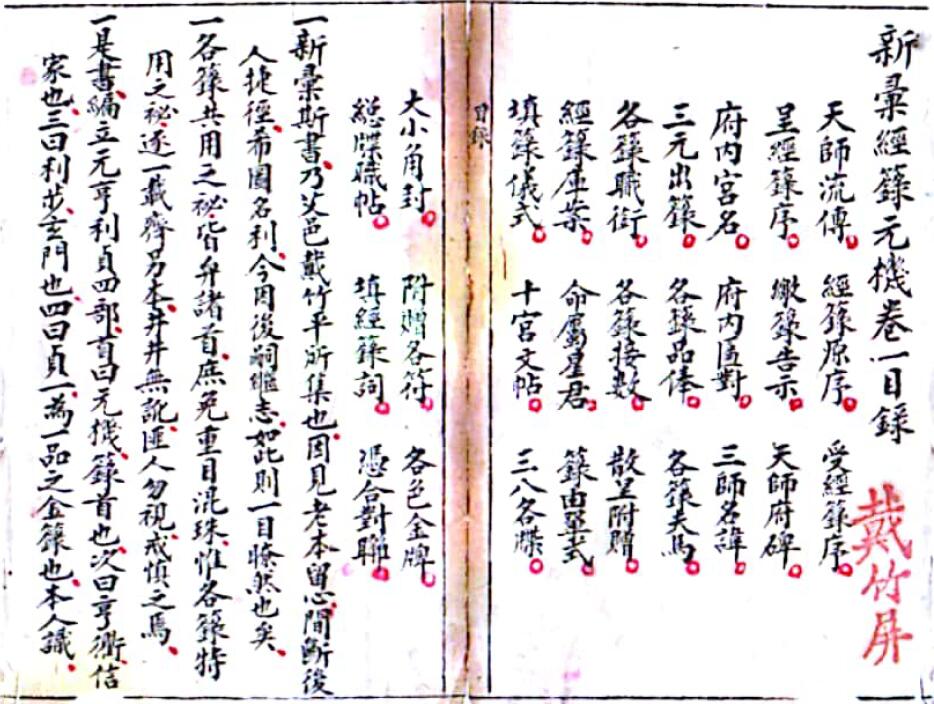 新彙經籙元機卷一目錄
戴竹屏
天師流傳 經籙原序 受經籙序
呈經籙序 繳籙告示 天師府碑
府內宮名 府內匾對 三師名諱
三元出籙 各籙品俸 各籙夫馬
各籙職銜 各籙接數 散呈附贈
經籙庫葉 命屬星君 籙由單式
填籙儀式 十宮文帖 三八各牒
目錄
大小角封 附贈各符 各色金牌
總牒職帖 填經籙詞 憑合對聯
一新彙斯書乃艾邑戴竹平所集也因見老本留忌間斷後
人捷徑希圖名利今因後嗣繼志如此則一目瞭然也矣
一各籙共用之祕皆弁諸首庶免重目混珠惟各籙特
用之祕逐一載齊另本井井無訛匪人勿視戒慎之焉
一是書編立元亨利貞四部首曰元機籙首也次曰亨衢信
家也三曰利步玄門也四曰貞一為一品之金籙也本人識